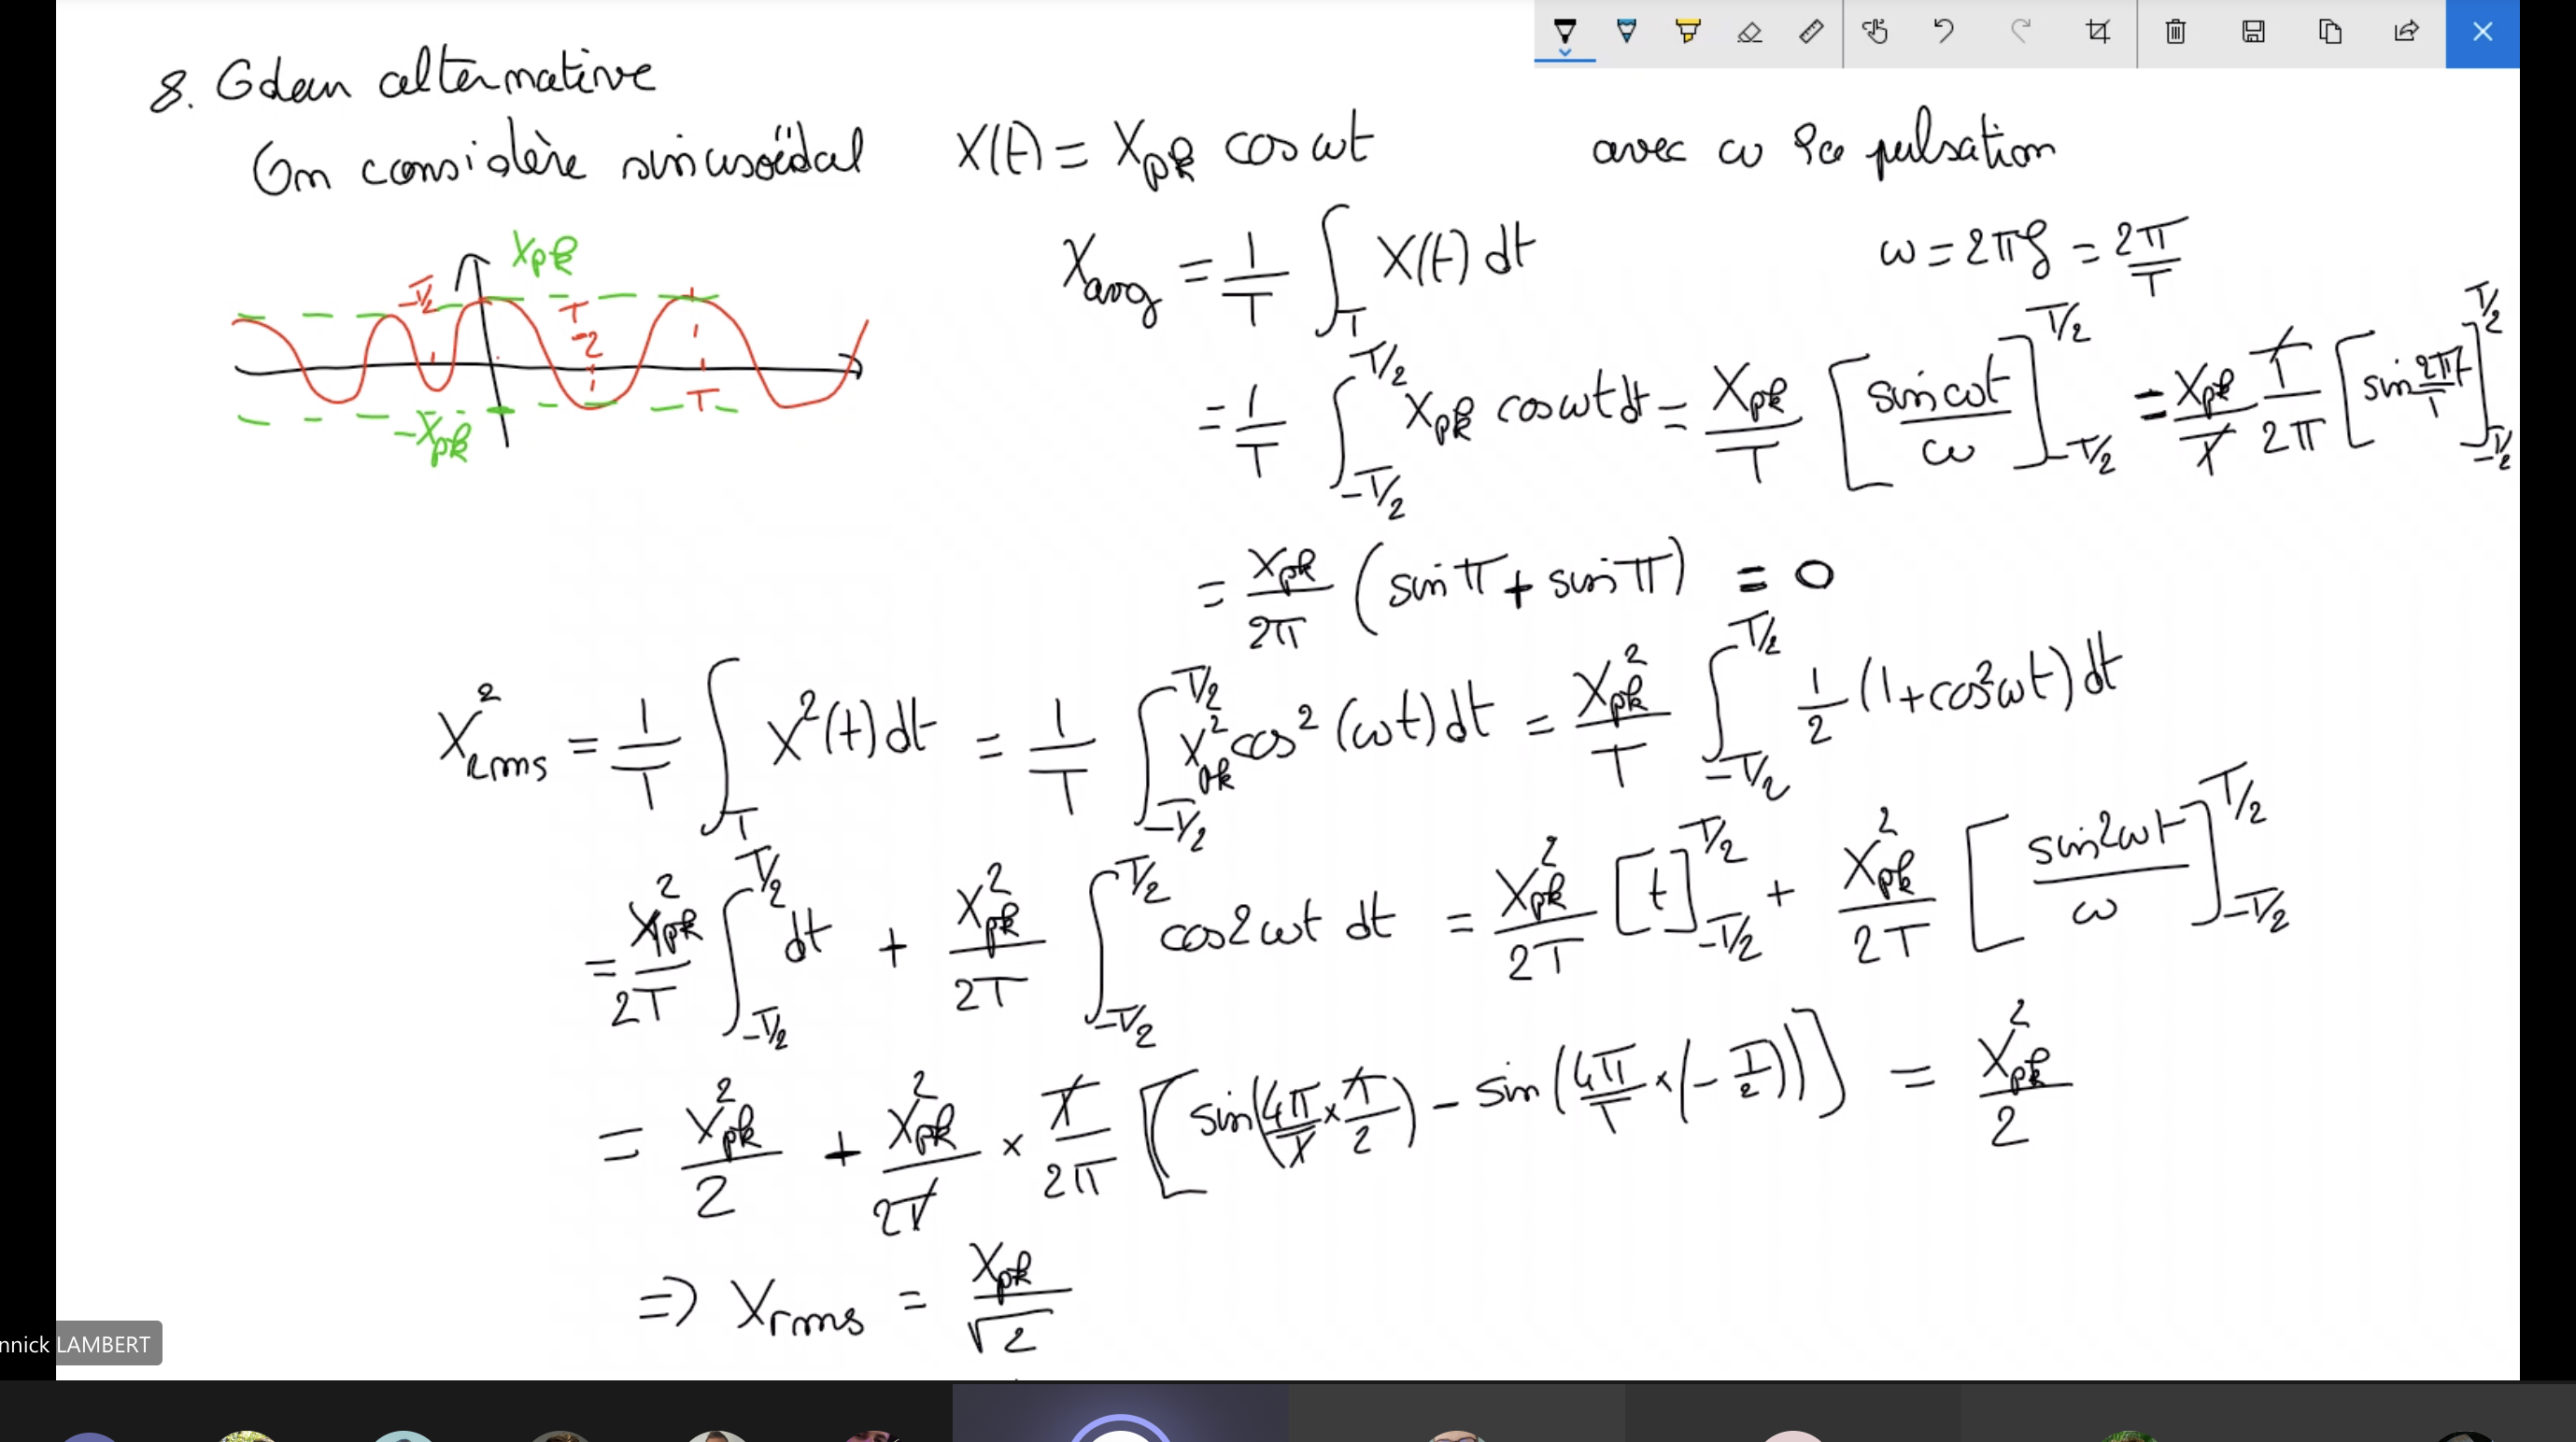 8. Gdeur alternative
On considère sinusoïdal X(t) = Xpk cos ωt avec ω la pulsation
Xavg = 1/T ∫_T X(t) dt ω = 2πf = 2π/T
Xpk
-T/2
T/2
T
-Xpk
= 1/T ∫_{-T/2}^{T/2} Xpk cos ωt dt = Xpk/T [sin ωt/ω]_{-T/2}^{T/2} = Xpk/T T/2π [sin 2πt/T]_{-T/2}^{T/2}
= Xpk/2π (sin π + sin π) = 0
X²rms = 1/T ∫_T X²(t) dt = 1/T ∫_{-T/2}^{T/2} X²pk cos²(ωt) dt = X²pk/T ∫_{-T/2}^{T/2} 1/2 (1+cos2ωt) dt
= X²pk/2T ∫_{-T/2}^{T/2} dt + X²pk/2T ∫_{-T/2}^{T/2} cos2ωt dt = X²pk/2T [t]_{-T/2}^{T/2} + X²pk/2T [sin2ωt/ω]_{-T/2}^{T/2}
= X²pk/2 + X²pk/2T × T/2π [sin(4π/T × T/2) - sin(4π/T × (-T/2))] = X²pk/2
⇒ Xrms = Xpk/√2
nnick LAMBERT